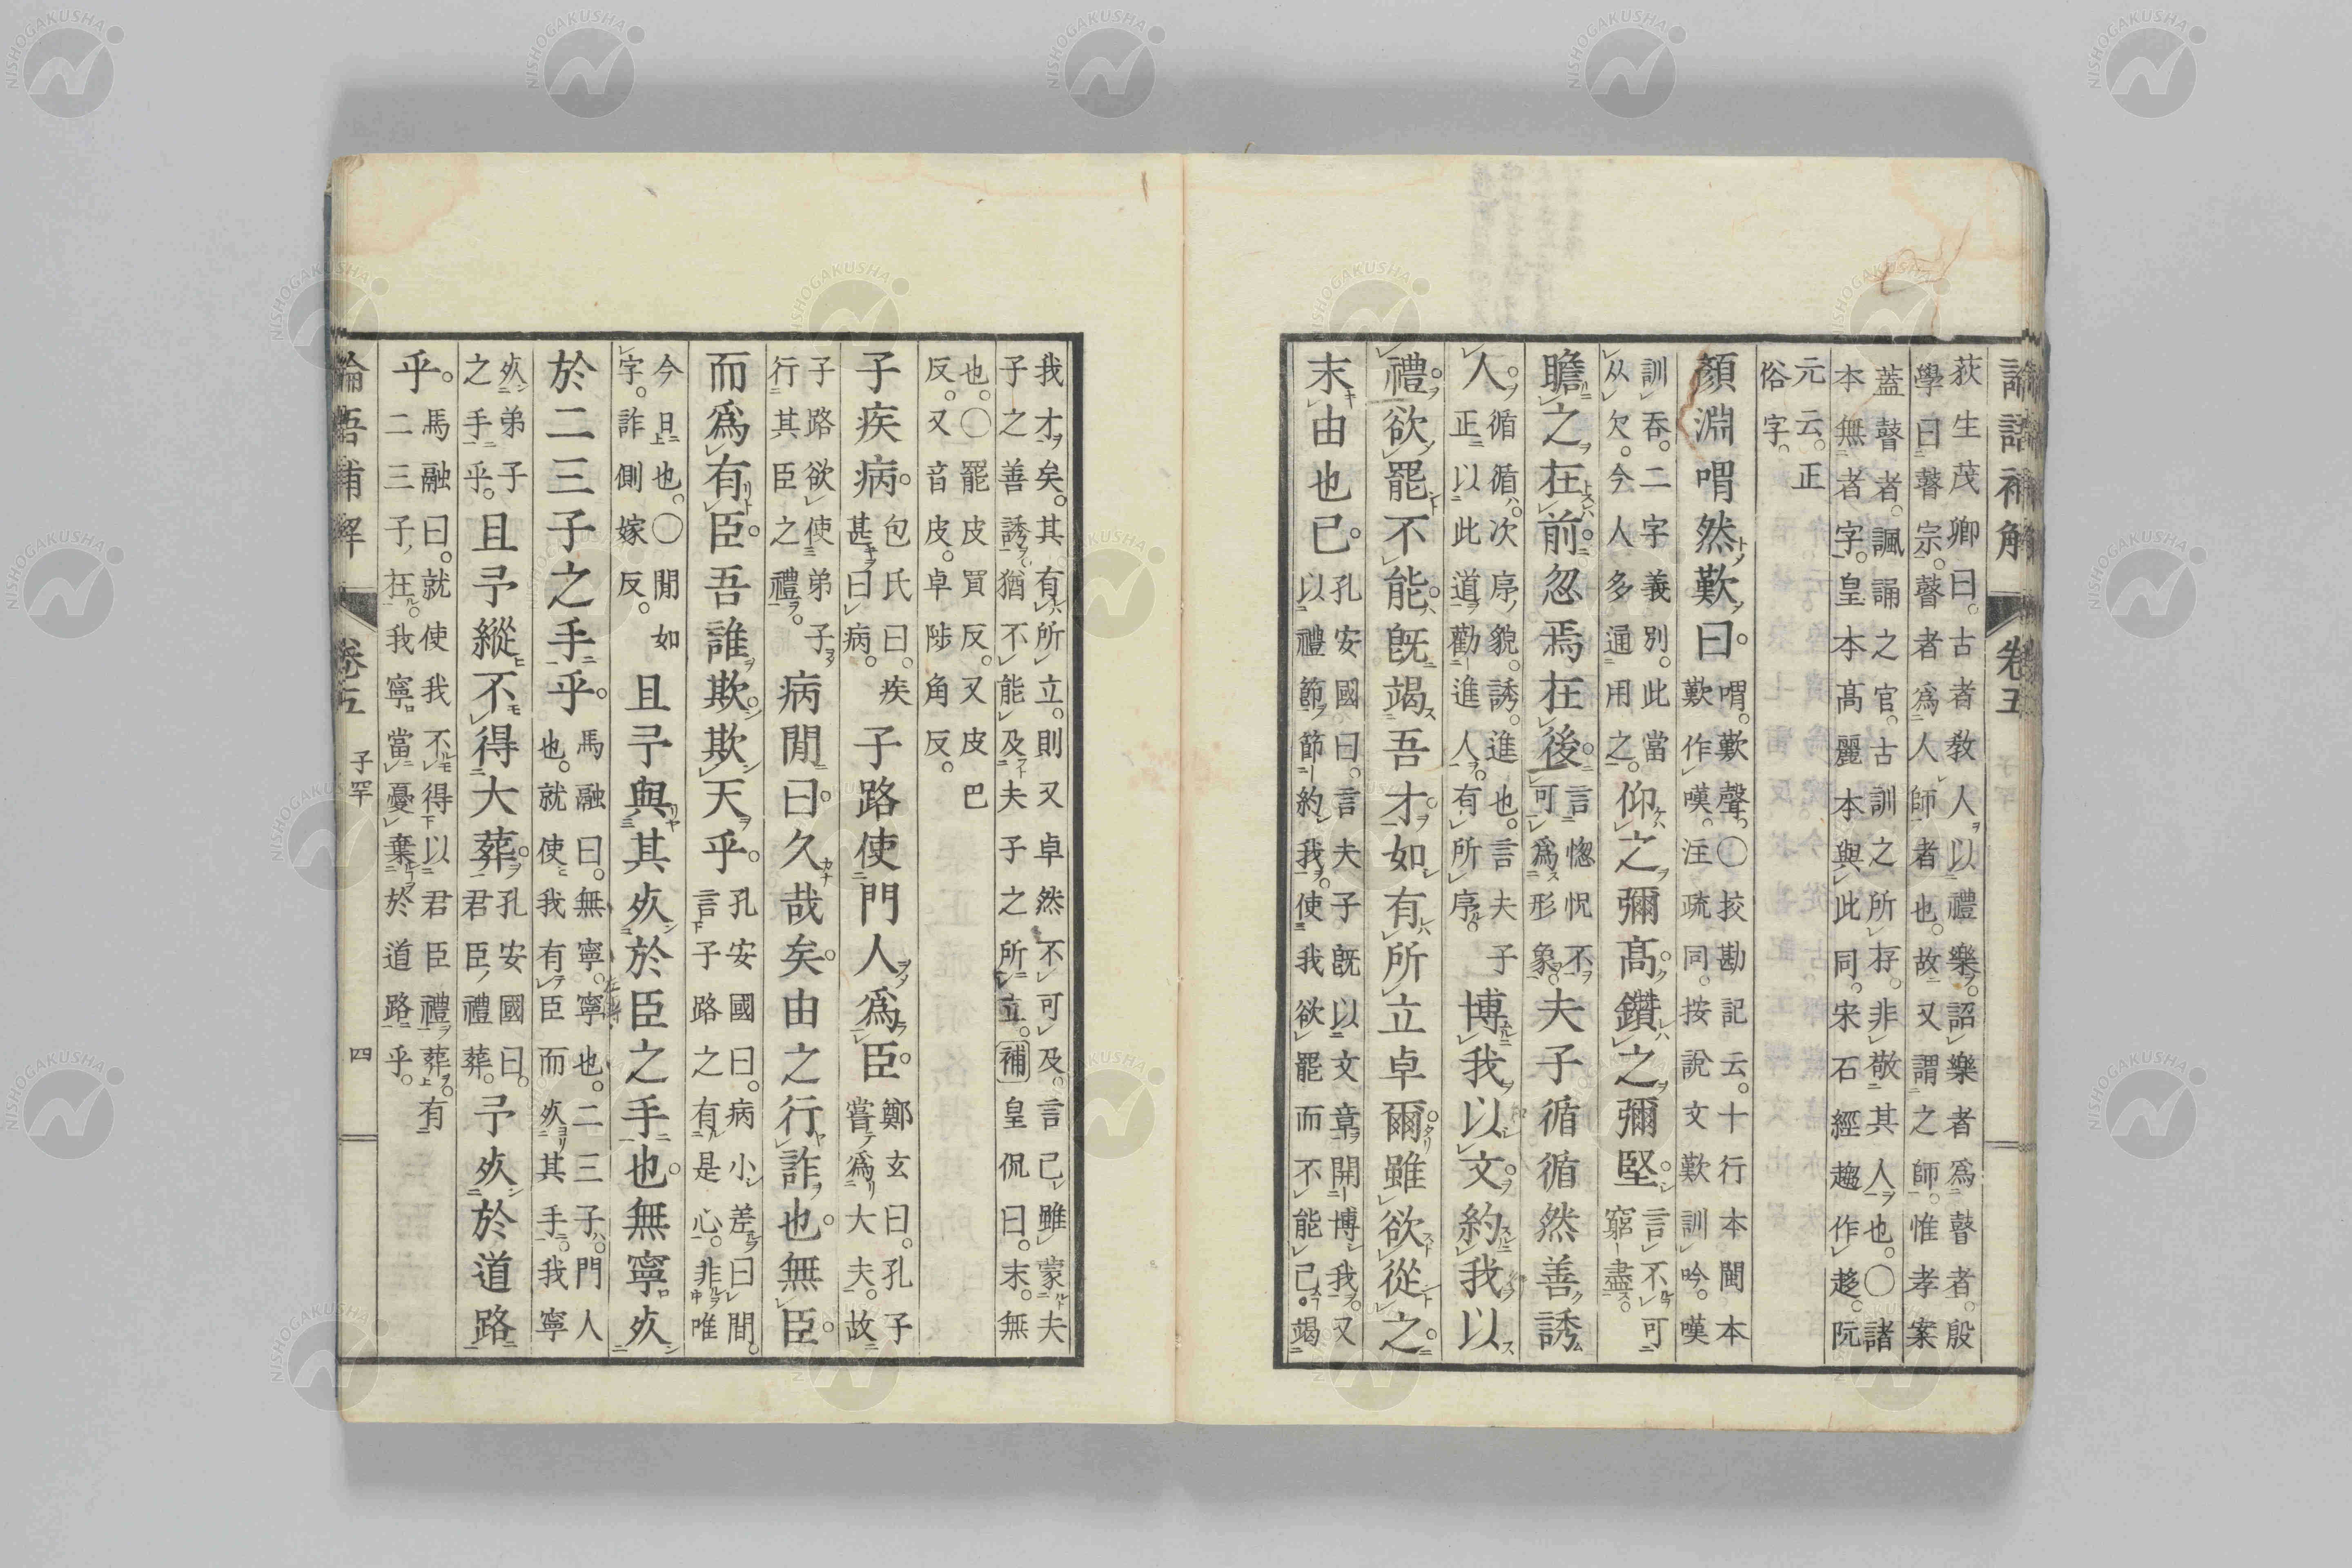 論語補解 卷五
荻生茂卿曰。古者敎人以禮樂。詔樂者爲瞽者。殷
學曰瞽宗。瞽者爲人師者也。故又謂之師。惟孝案
蓋瞽者。諷誦之官。古訓之所存。非敬其人也。○諸
本無者字。皇本高麗本與此同。宋石經趨作趍。阮
元云。正
俗字。
顏淵喟然歎曰。喟。歎聲。○挍勘記云。十行本閩本歎作嘆。注疏同。按說文歎訓吟。嘆
訓吞。二字義別。此當从欠。今人多通用之。仰之彌高。鑽之彌堅。言不可窮盡。
瞻之在前。忽焉在後。言惚怳不可爲形象。夫子循循然善誘
人。循循。次序貌。誘。進也。言夫子正以此道勸進人。有所序。博我以文。約我以
禮。欲罷不能。旣竭吾才。如有所立卓爾。雖欲從之。
末由也已。孔安國曰。言夫子旣以文章開博我。又以禮節節約我。使我欲罷而不能已。竭
我才矣。其有所立。則又卓然不可及。言己雖蒙夫
子之善誘。猶不能及夫子之所立。補皇侃曰。末。無
也。○罷皮買反。又皮巴
反。又音皮。卓陟角反。
子疾病。包氏曰。疾甚曰病。子路使門人爲臣。鄭玄曰。孔子嘗爲大夫。故
子路欲使弟子行其臣之禮。病閒曰。久哉矣。由之行詐也。無臣。
而爲有臣。吾誰欺。欺天乎。孔安國曰。病小差曰間。言子路之有是心。非唯
今日也。○閒如字。詐側嫁反。且予與其死於臣之手也。無寧死
於二三子之手乎。馬融曰。無寧。寧也。二三子。門人也。就使我有臣而死其手。我寧
死弟子之手乎。且予縱不得大葬。孔安國曰。君臣禮葬。予死於道路
乎。馬融曰。就使我不得以君臣禮葬。有二三子在。我寧當憂棄於道路乎。
論語補解 卷五 子罕 四